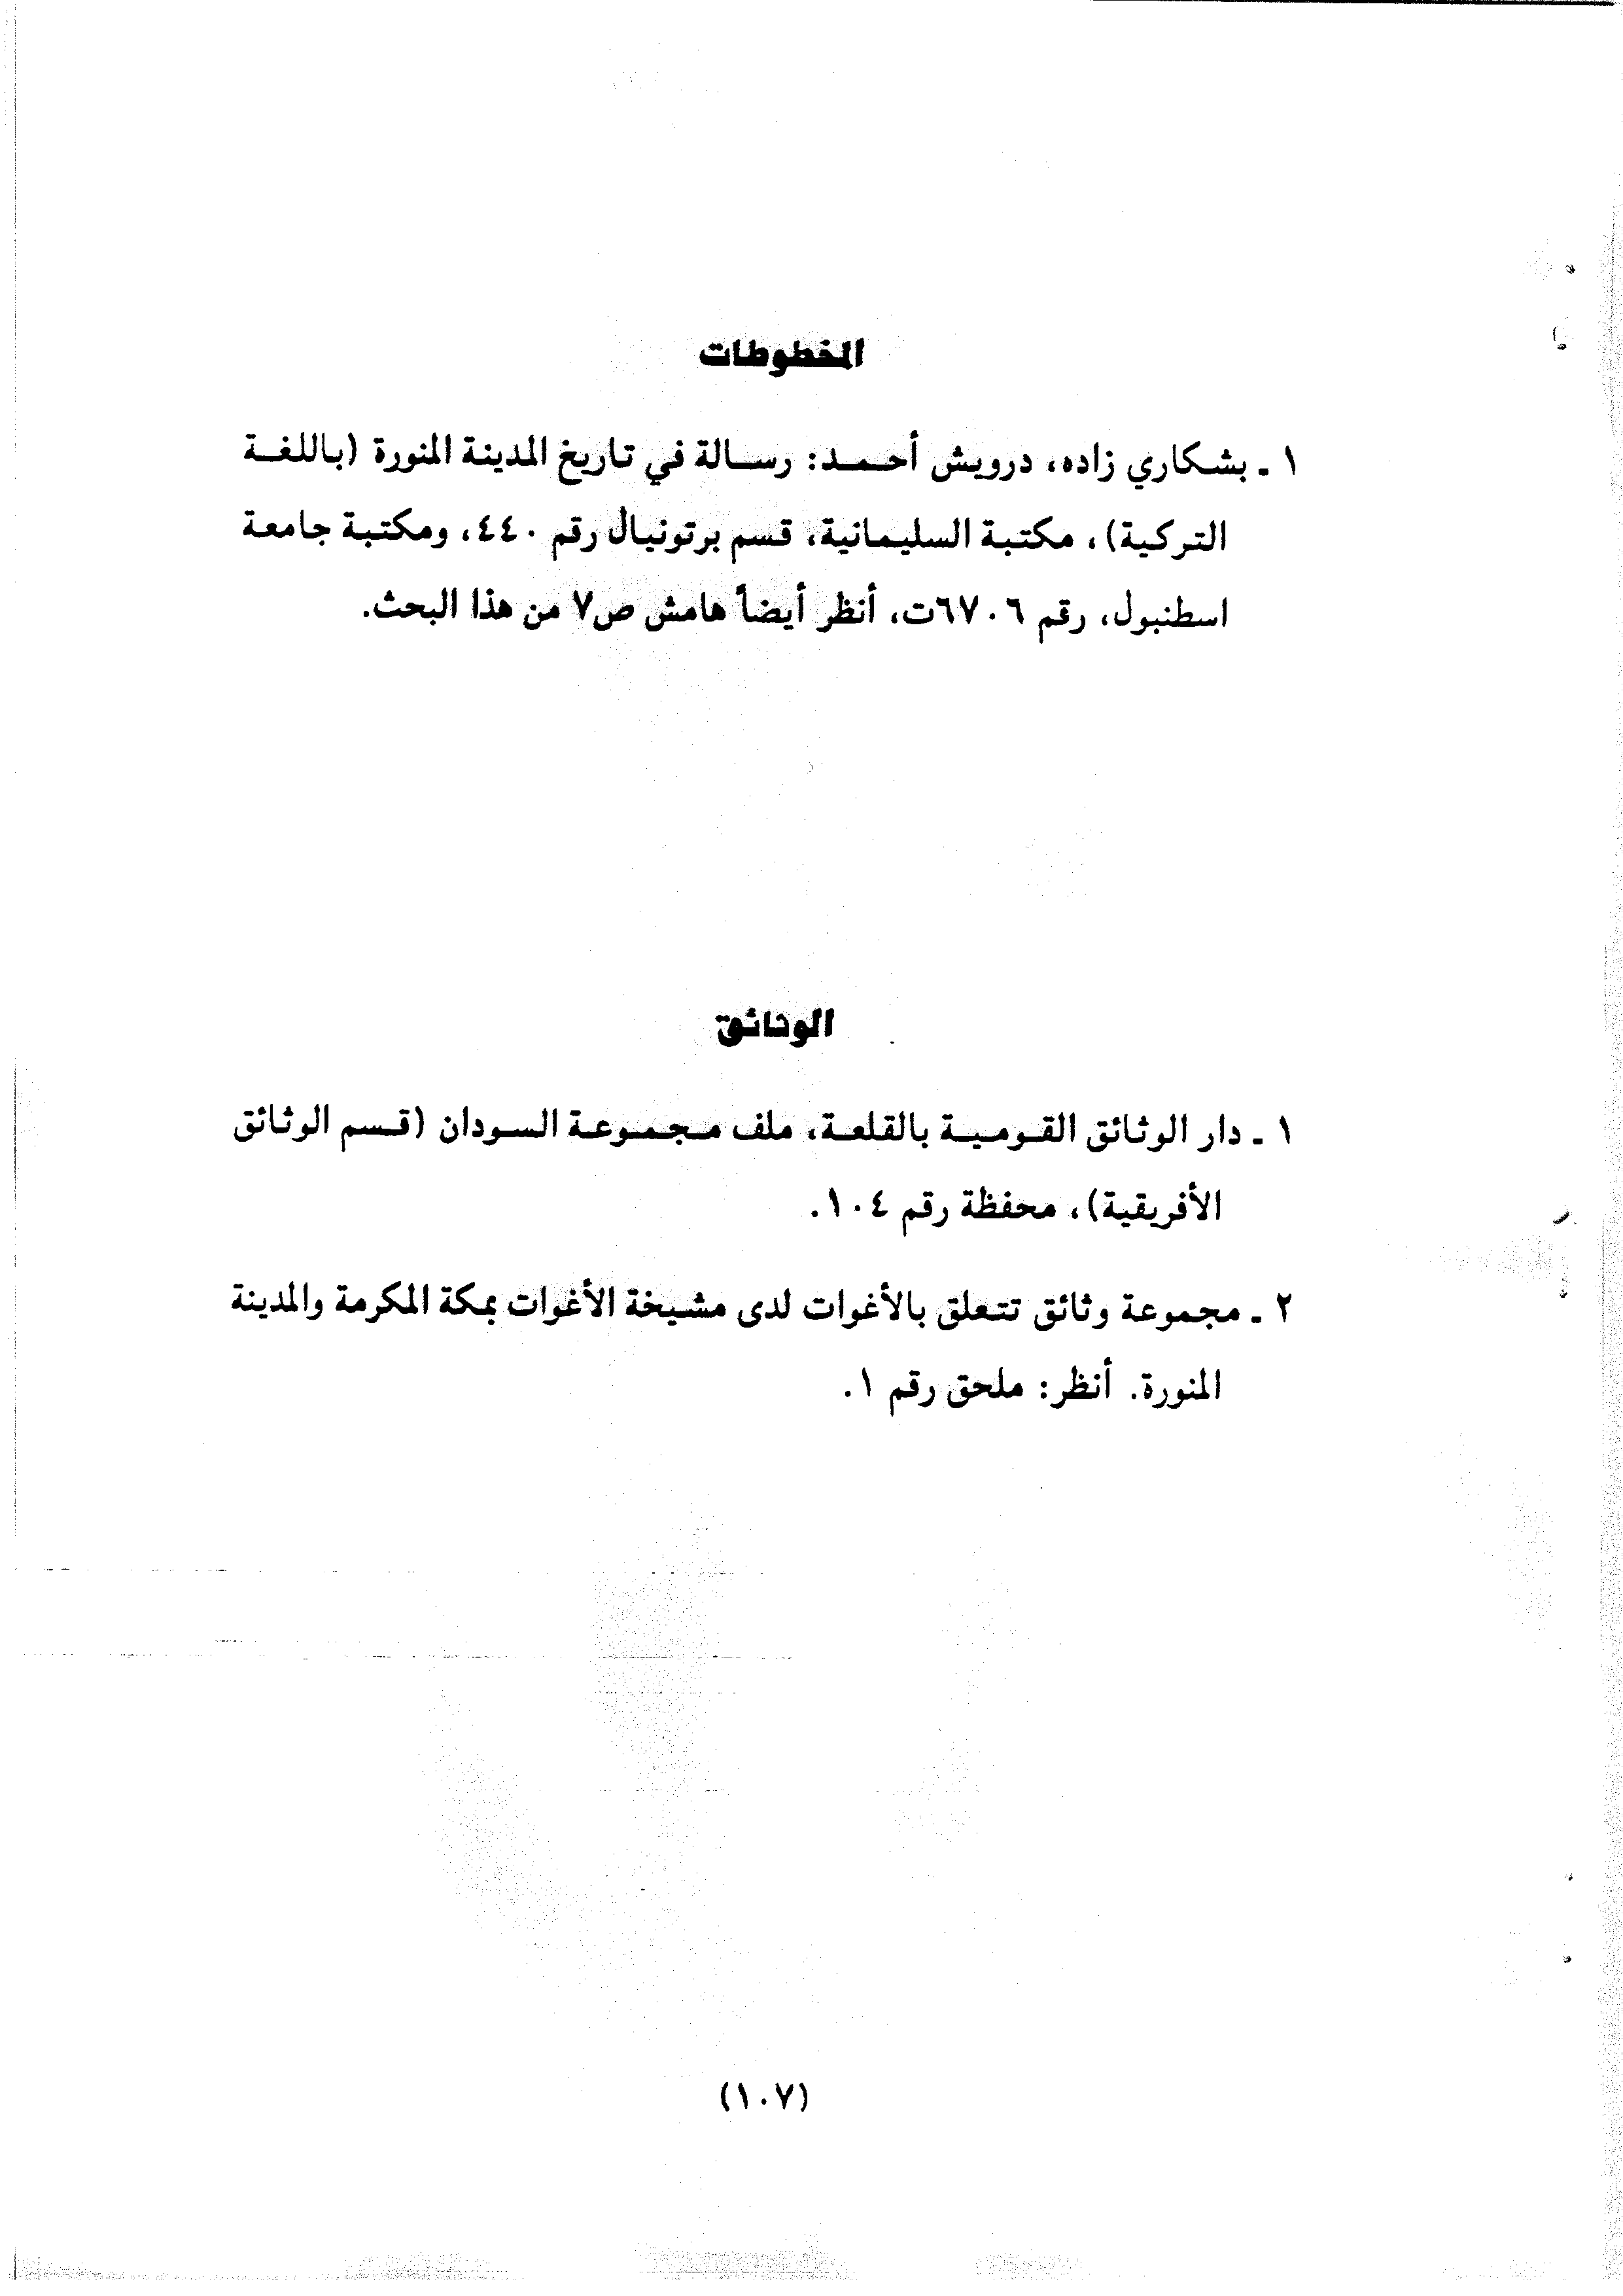 المخطوطات
١ ـ بشكاري زاده، درويش أحمد: رسالة في تاريخ المدينة المنورة (باللغة
التركية)، مكتبة السليمانية، قسم برتونيال رقم ٤٤٠، ومكتبة جامعة
اسطنبول، رقم ٦٧٠٦ت، أنظر أيضاً هامش ص٧ من هذا البحث.
الوثائق
١ ـ دار الوثائق القومية بالقلعة، ملف مجموعة السودان (قسم الوثائق
الأفريقية)، محفظة رقم ١٠٤.
٢ ـ مجموعة وثائق تتعلق بالأغوات لدى مشيخة الأغوات بمكة المكرمة والمدينة
المنورة. أنظر: ملحق رقم ١.
(١٠٧)